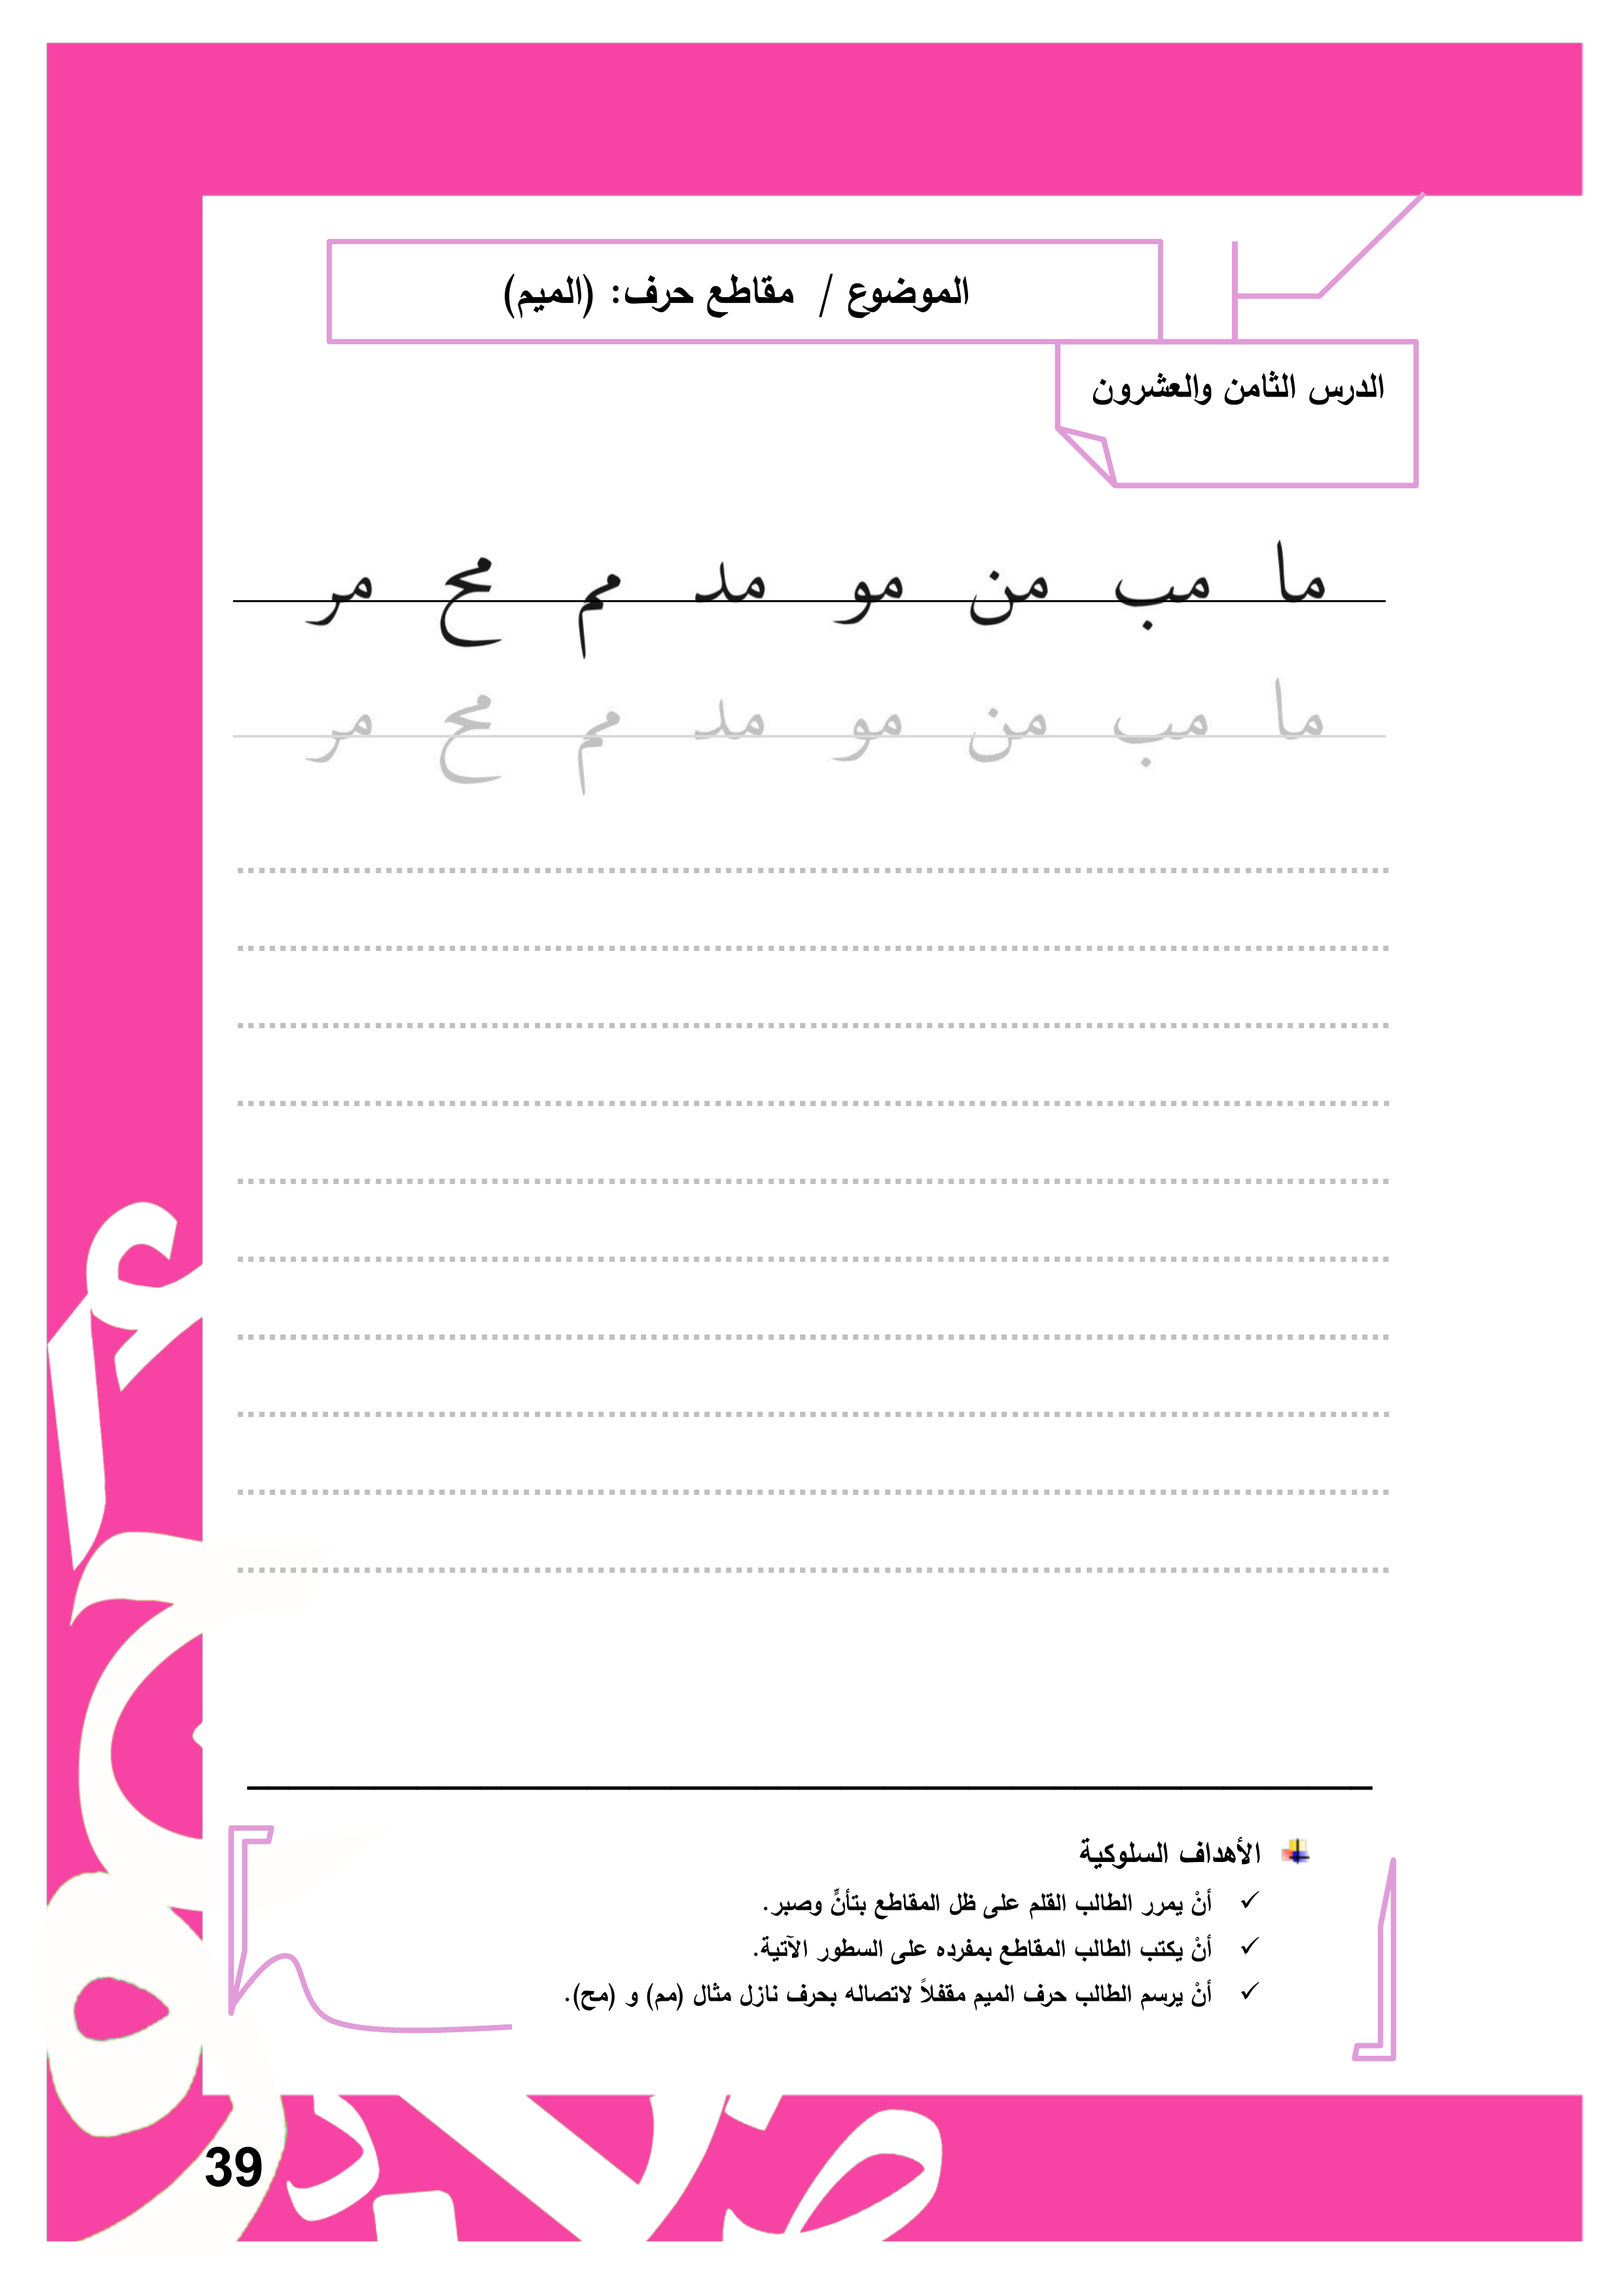 الموضوع / مقاطع حرف: (الميم)
الدرس الثامن والعشرون
ما مب من مو مد مم مح مر
ما مب من مو مد مم مح مر
الأهداف السلوكية
أنْ يمرر الطالب القلم على ظل المقاطع بتأنٍّ وصبر.
أنْ يكتب الطالب المقاطع بمفرده على السطور الآتية.
أنْ يرسم الطالب حرف الميم مقفلاً لاتصاله بحرف نازل مثال (مم) و (مح).
39